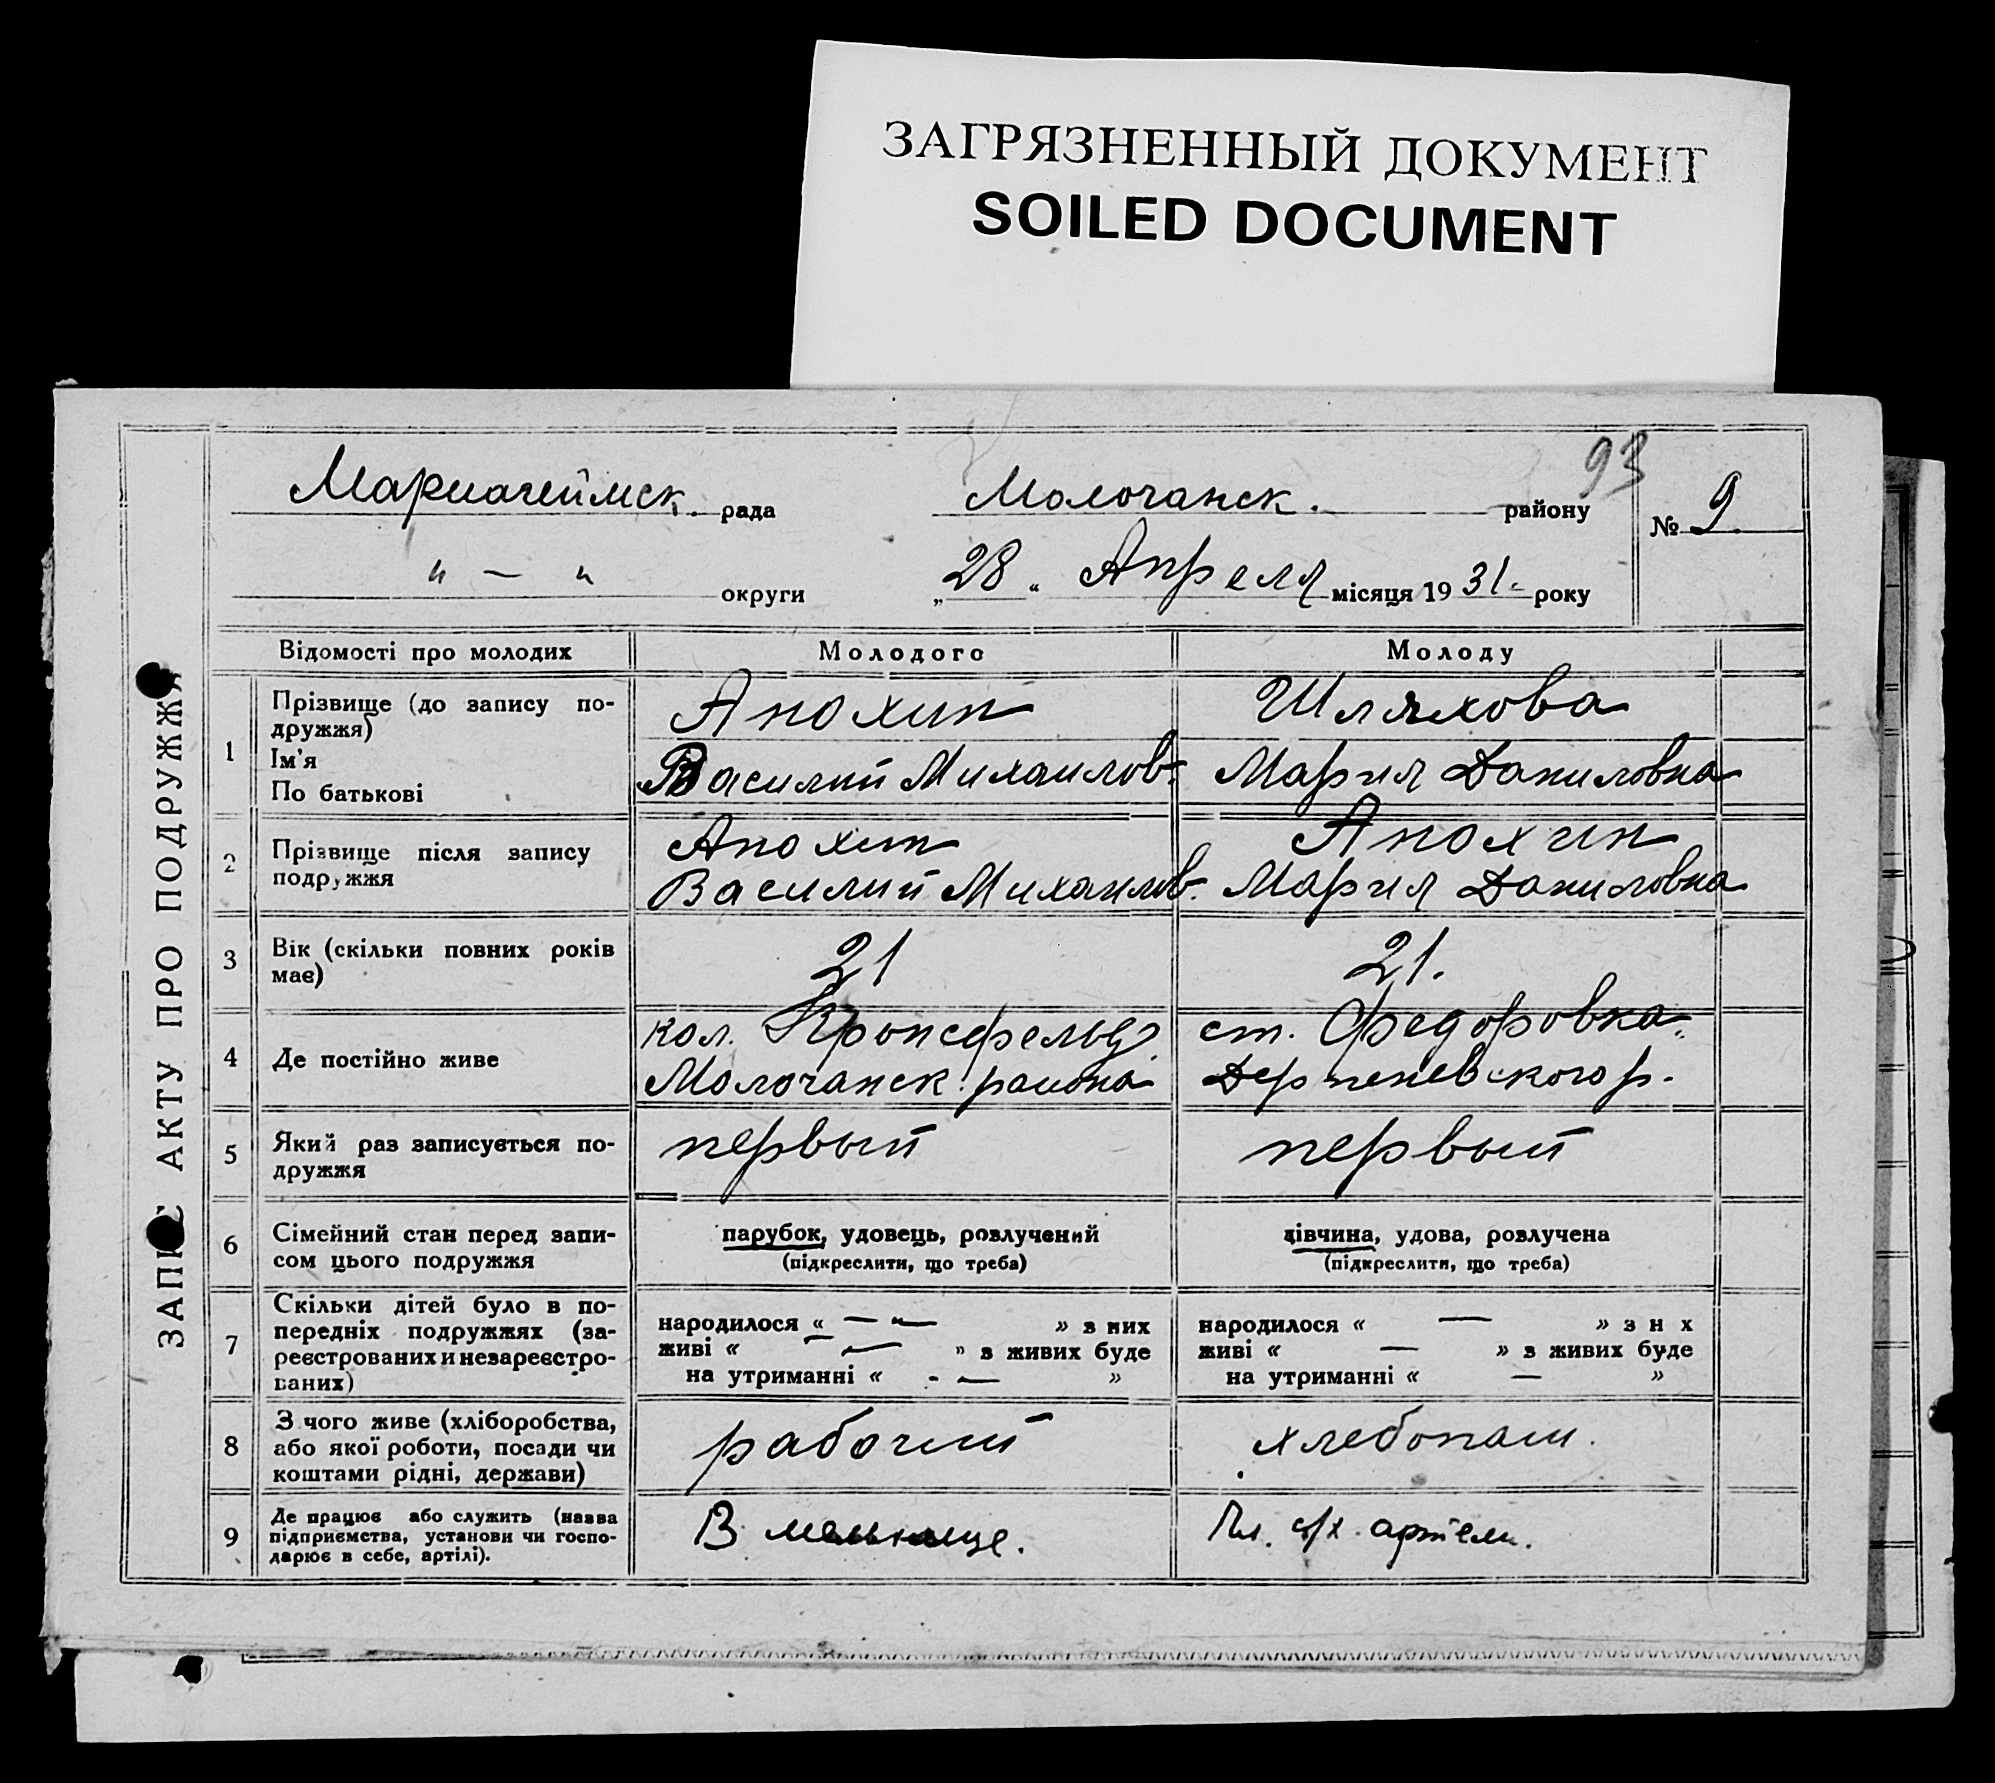 ЗАГРЯЗНЕННЫЙ ДОКУМЕНТ
SOILED DOCUMENT
93
Мариагеймск. рада Молочанск. району № 9.
" — " округи „28“ Апреля місяця 1931. року
ЗАПИС АКТУ ПРО ПОДРУЖЖЯ
Відомості про молодих Молодого Молоду
1 Прізвище (до запису по-
дружжя)
Ім'я
По батькові
Анохин Шляхова
Василий Михаилов. Мария Даниловна
2 Прізвище після запису
подружжя
Анохин Анохин
Василий Михаилов. Мария Даниловна
3 Вік (скільки повних років
має)
21 21.
4 Де постійно живе
кол. Кронсфельд ст. Федоровка.
Молочанск. района Дерпеневского р.
5 Який раз записується по-
дружжя
первый первый
6 Сімейний стан перед запи-
сом цього подружжя
парубок, удовець, розлучений дівчина, удова, розлучена
(підкреслити, що треба) (підкреслити, що треба)
7 Скільки дітей було в по-
передніх подружжях (за-
реєстрованих и незареєстро-
ваних)
народилося « — " — » з них народилося « — » з н х
живі « — » з живих буде живі « — » з живих буде
на утриманні « - — » на утриманні « — »
8 З чого живе (хліборобства,
або якої роботи, посади чи
коштами рідні, держави)
рабочий хлебопаш.
9 Де працює або служить (назва
підприємства, установи чи госпо-
дарює в себе, артілі).
В мельнице. Чл. с/х. артели.